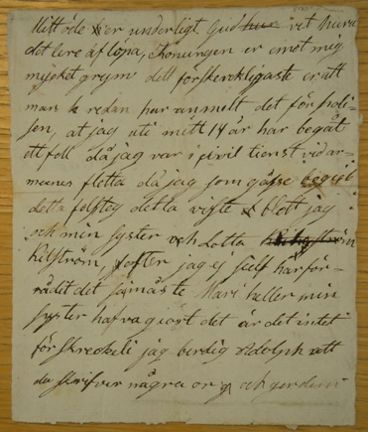 Mitt öde är underligt Gud vet huru
det lerer af löpa, Konungen er emot mig
mycket grym dett förskreckligaste er att
man redan har anmelt det för poli-
sen, at jag uti mitt 14 år har begåt
ett fell då jag var i civil tienst vid ar-
meens flotta då jag som gåsse begick
detta felsteg detta viste blott jag
och min syster och Lotta
Kihlström, efter jag ej sielf har för-
rådet det så måste Mari heller min
syster hafva giort det är det intet
förskreckeli jag beder dig Adolph att
du skrifver några or och